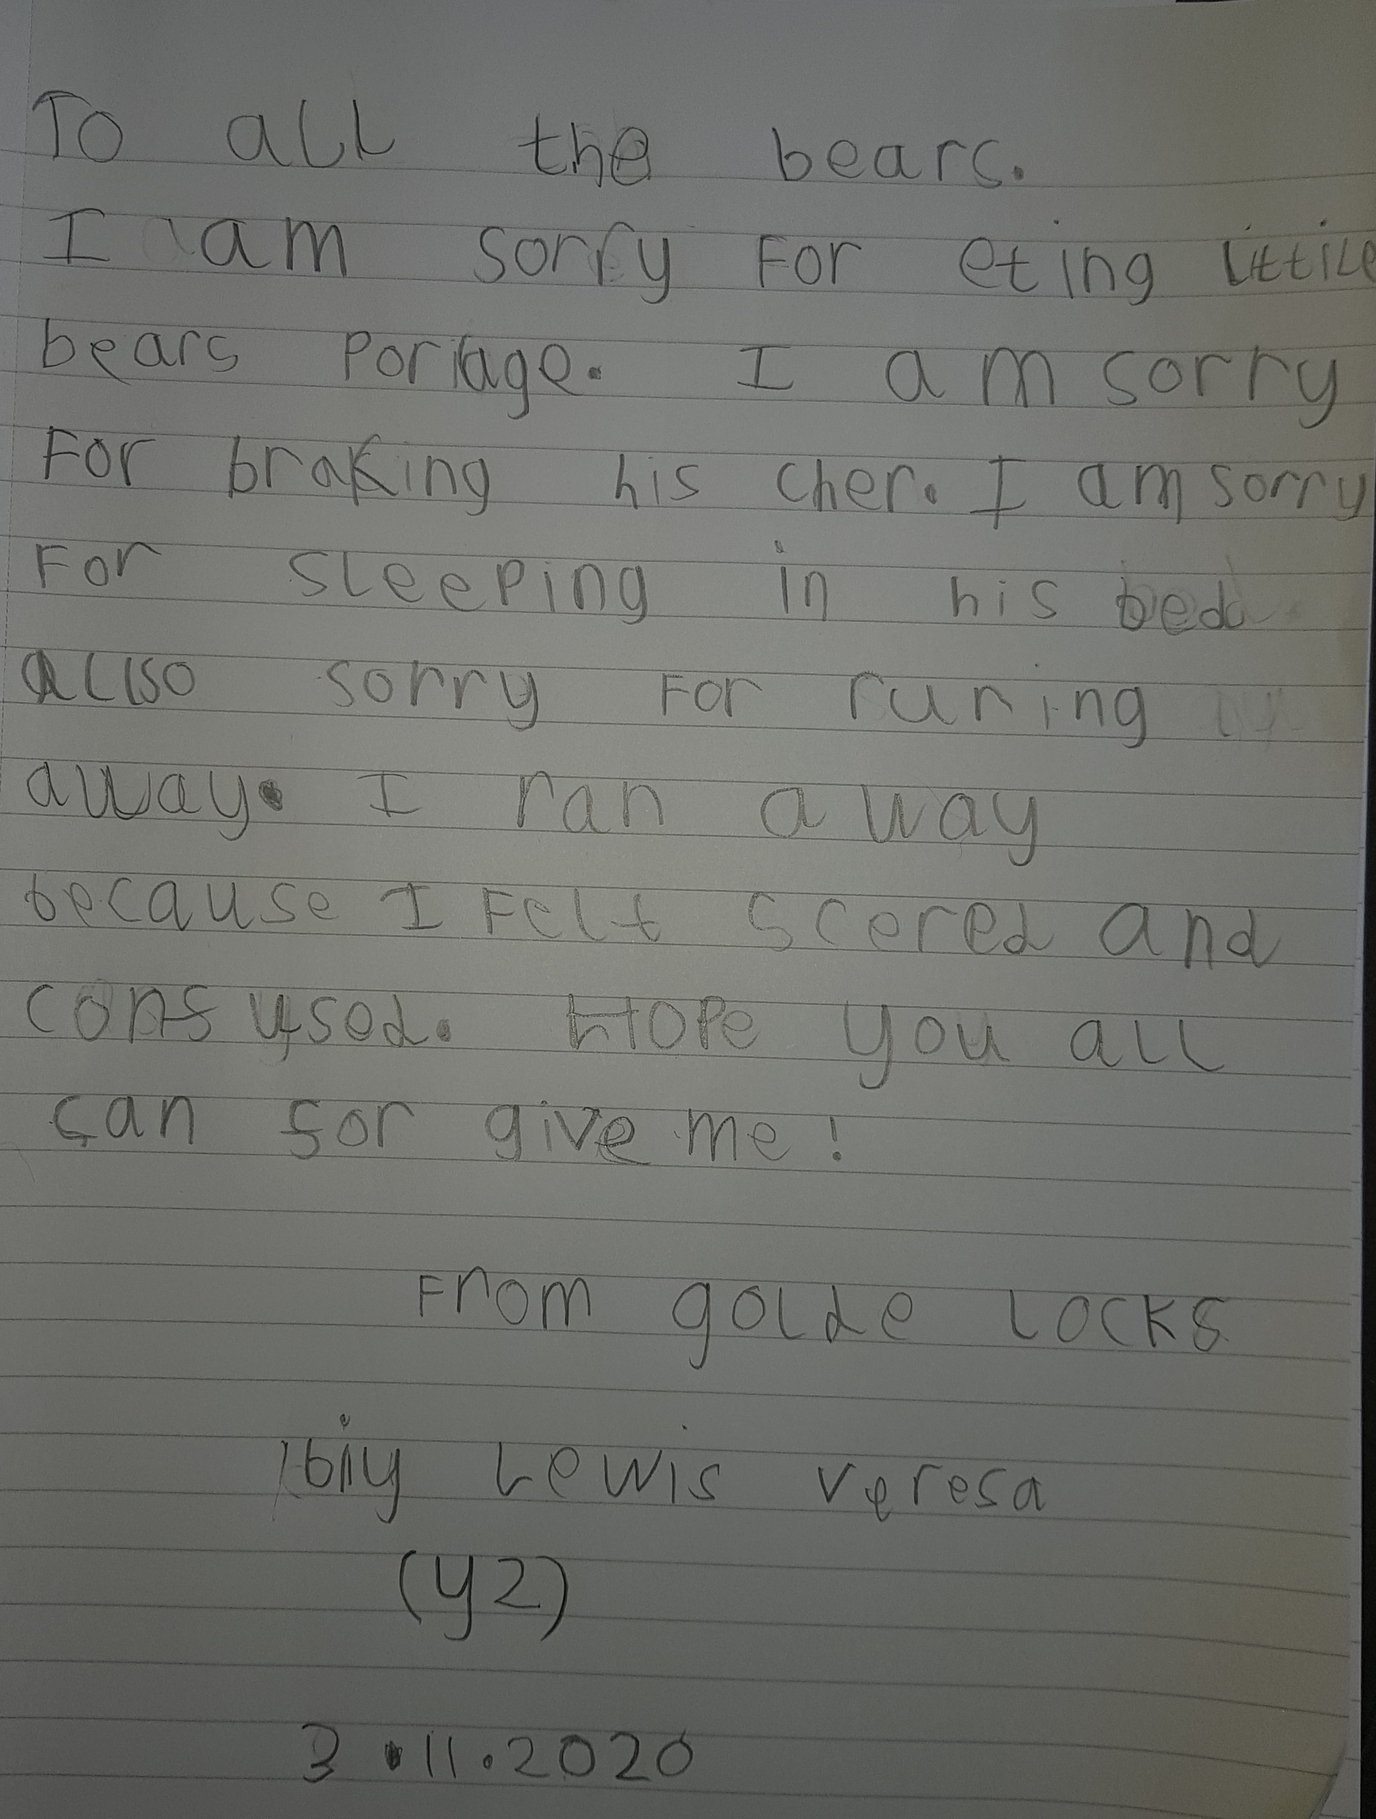 To all the bears.
I am sorry For eting little
bears Poriage. I am sorry
For braking his cher. I am sorry
For sleeping in his bed
also sorry For runing
away. I ran away
because I Felt scered and
confused. Hope you all
can for give me!
From golde Locks
Lewis veresa
(y2)
3.11.2020